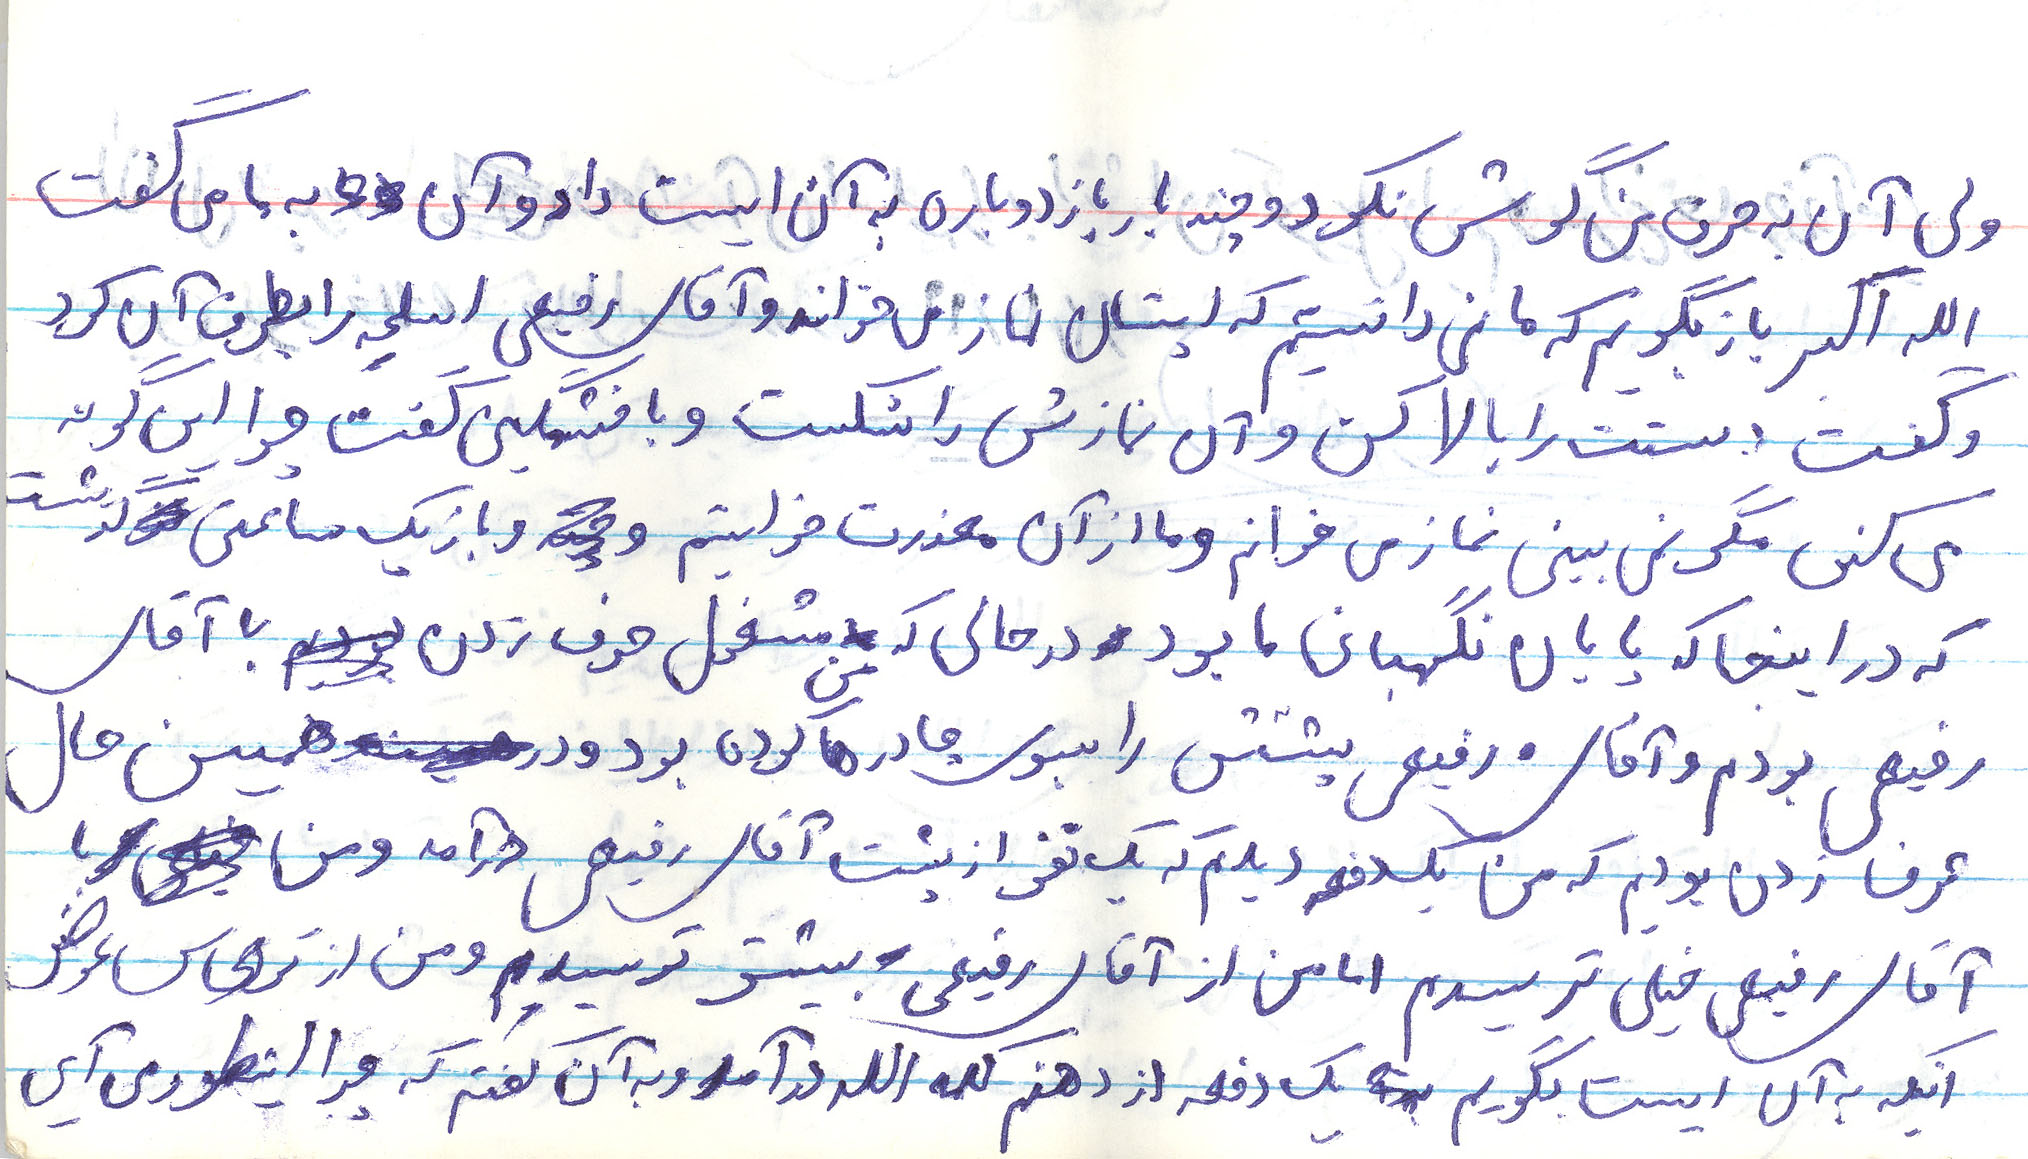 ولی آن به حرف من گوش نکرد و چند بار باز دوباره به آن ایست داد و آن به ما می گفت
الله اکبر باز بگویم که ما نمی دانستیم که ایشان نماز می خواند و آقای رفیعی اسلحه را بطرف آن کرد
و گفت دستت را بالا کن و آن نمازش را شکست و با خشمگینی گفت چرا این گونه
می کنی مگر نمی بینی نماز می خوانم و ما از آن معذرت خواستیم و و باز یک ساعتی گذشت
که در اینجا که پایان نگهبانی ما بود در حالی که من مشغول حرف زدن با آقای
رفیعی بودم و آقای رفیعی پشتش را بسوی چادرها کرده بود و در همین حال
حرف زدن بودیم که من یکدفعه دیدم که یک نفر از پشت آقای رفیعی درآمد و من با
آقای رفیعی خیلی ترسیدم اما من از آقای رفیعی بیشتر ترسیدم و من از ترس عوض
اینکه به آن ایست بگویم یک دفعه از دهنم کلمه الله درآمد و به آن گفتم که چرا اینطوری آی